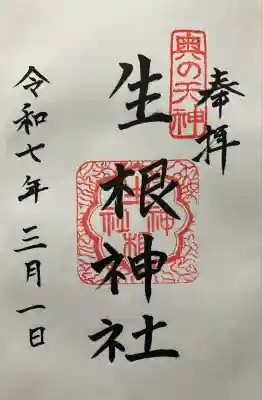 奉拝
奥の天神
生根神社
生根神社
令和七年 三月一日